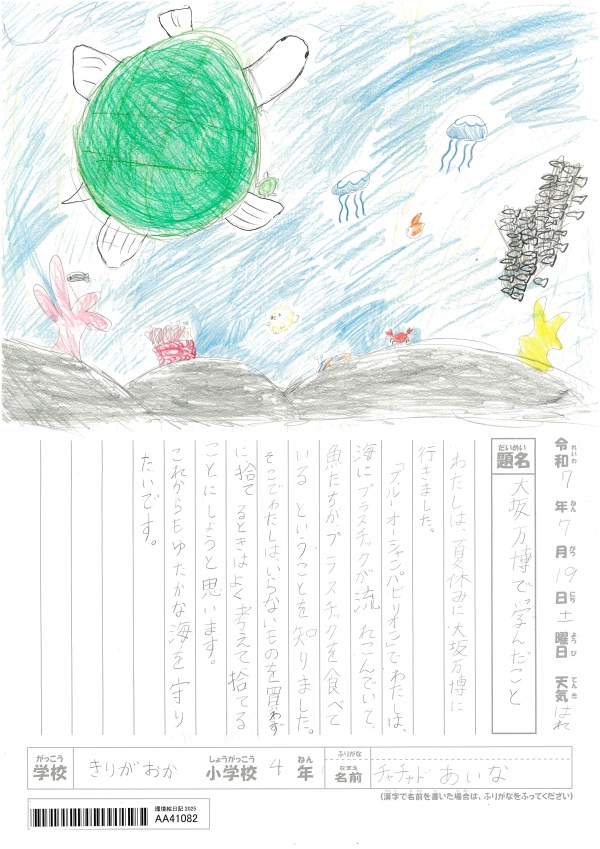 令和7年7月19日土曜日 天気はれ
れいわ ねん がつ にち ようび てんき
だいめい
題名 大坂万博で学んだこと
わたしは、夏休みに大坂万博に
行きました。
「ブルーオーシャンパビリオン」でわたしは、
海にプラスチックが流れこんでいて、
魚たちがプラスチックを食べて
いるということを知りました。
そこでわたしは、いらないものを買わず
に捨てるときはよく考えて捨てる
ことにしようと思います。
これからもゆたかな海を守り
たいです。
がっこう しょうがっこう ねん ふりがな
学校 きりがおか 小学校 4 年
なまえ
名前 チャチャド あいな
(漢字で名前を書いた場合は、ふりがなをふってください)
環境絵日記 2025
AA41082